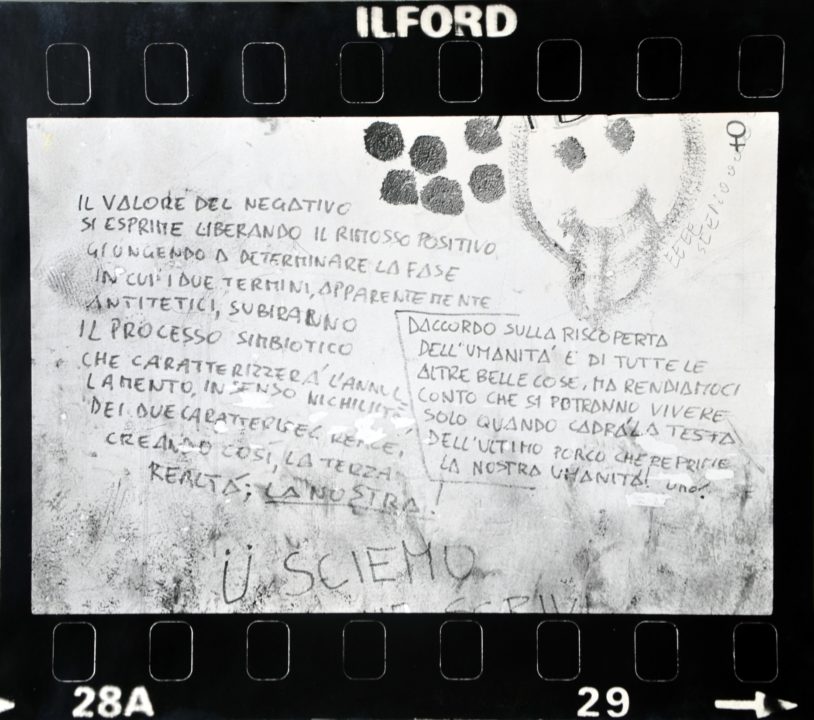 ILFORD
IL VALORE DEL NEGATIVO
SI ESPRIME LIBERANDO IL RIMOSSO POSITIVO
GIUNGENDO A DETERMINARE LA FASE
IN CUI I DUE TERMINI, APPARENTEMENTE
ANTITETICI, SUBIRANNO
IL PROCESSO SIMBIOTICO
CHE CARATTERIZZERÁ L'ANNUL
LAMENTO, IN SENSO
DEI DUE CARATTERI
CREANDO COSÍ, LA TERZA
REALTÁ; LA NOSTRA!
DACCORDO SULLA RISCOPERTA
DELL'UMANITA' E DI TUTTE LE
ALTRE BELLE COSE, MA RENDIAMOCI
CONTO CHE SI POTRANNO VIVERE
SOLO QUANDO CADRÁ LA TESTA
DELL'ULTIMO PORCO CHE REPRIME
LA NOSTRA UMANITA'! uno!
Ü SCIEMO
28A
29